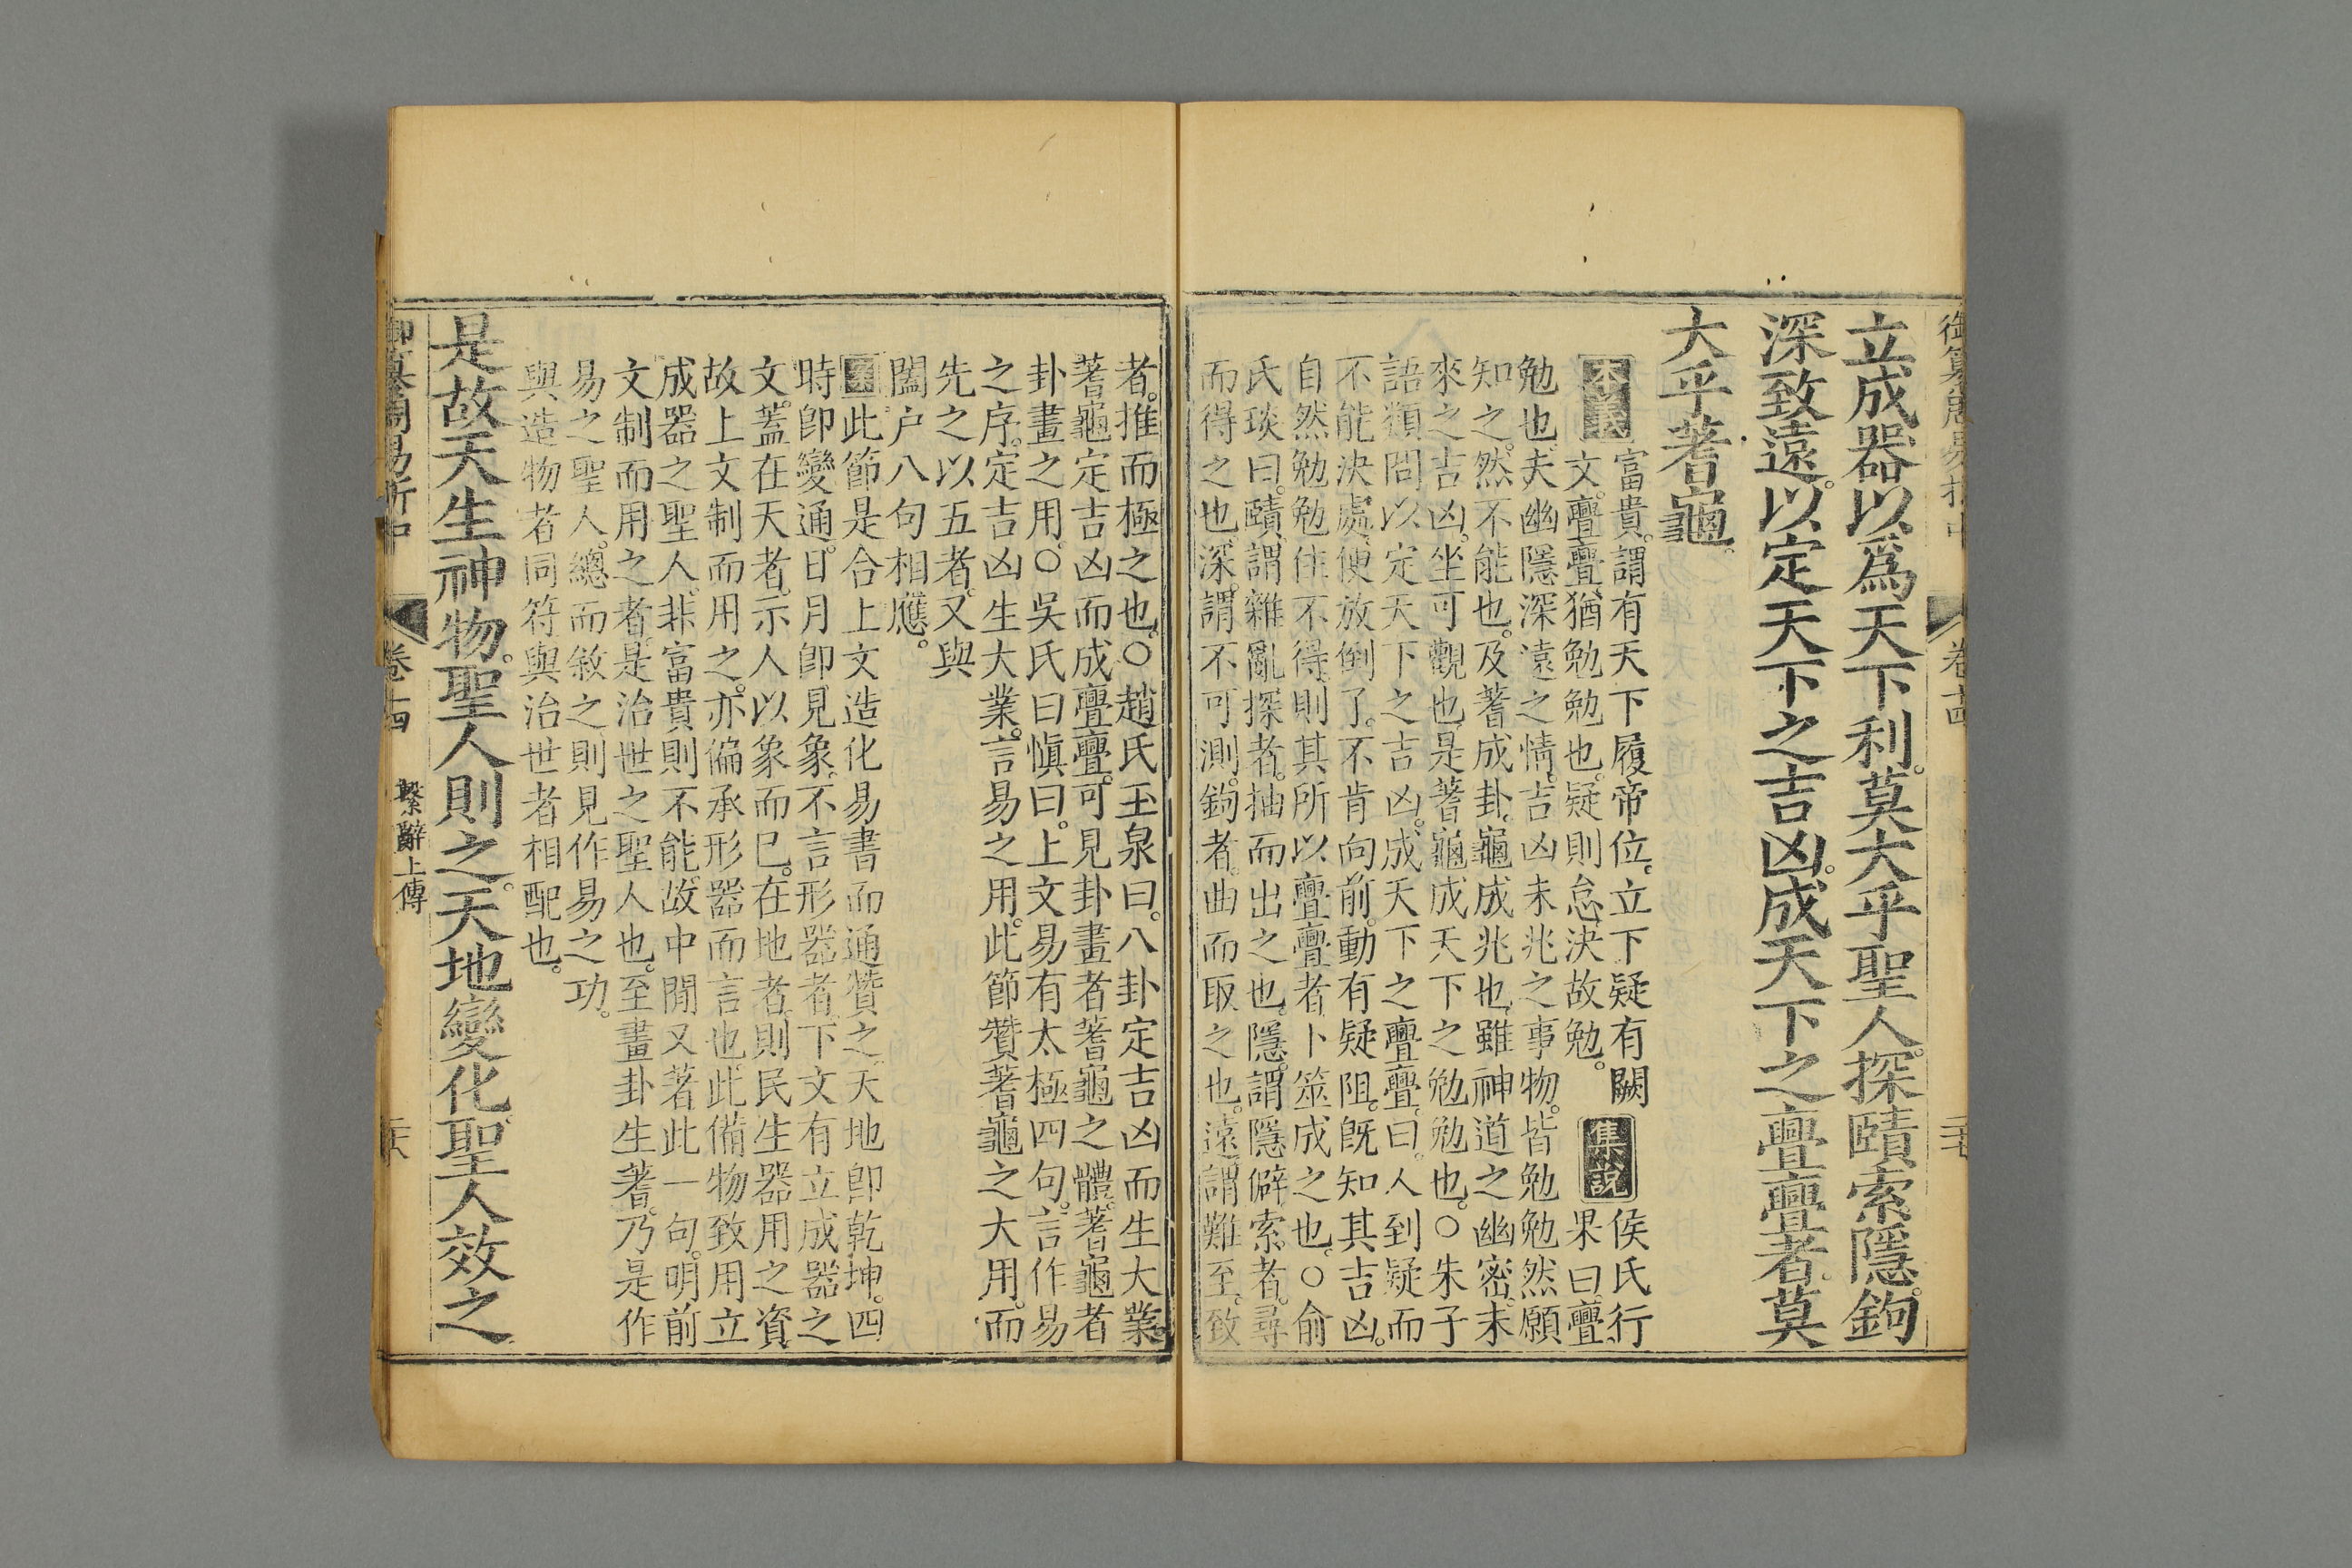 御纂周易折中
卷十四
立成器以爲天下利。莫大乎聖人。探賾索隱。鉤
深致遠。以定天下之吉凶。成天下之亹亹者。莫
大乎蓍龜。
本義 富貴。謂有天下履帝位。立下疑有闕
文。亹亹。猶勉勉也。疑則怠。決故勉。
集說 侯氏行
果曰。亹
勉也。夫幽隱深遠之情。吉凶未兆之事物。皆勉勉然願
知之。然不能也。及蓍成卦。龜成兆也。雖神道之幽密。未
來之吉凶。坐可觀也。是蓍龜成天下之勉勉也。○朱子
語類問以定天下之吉凶。成天下之亹亹。曰。人到疑而
不能決處。便放倒了。不肯向前。動有疑阻。既知其吉凶。
自然勉勉住不得。則其所以亹亹者。卜筮成之也。○俞
氏琰曰。賾。謂雜亂。探者。抽而出之也。隱。謂隱僻。索者。尋
而得之也。深。謂不可測。鉤者。曲而取之也。遠。謂難至。致
者。推而極之也。○趙氏玉泉曰。八卦定吉凶而生大業。
蓍龜定吉凶而成亹亹。可見卦畫者蓍龜之體。蓍龜者
卦畫之用。○吳氏曰慎曰。上文易有太極四句。言作易
之序。定吉凶生大業。言易之用。此節贊蓍龜之大用。而
先之以五者。又與
闔户八句相應。
案 此節是合上文造化易書而通贊之。天地卽乾坤。四
時卽變通。日月卽見象。不言形器者。下文有立成器之
文。蓋在天者。示人以象而已。在地者。則民生器用之資。
故上文制而用之。亦偏承形器而言也。此備物致用立
成器之聖人。非富貴則不能。故中閒又著此一句。明前
文制而用之者。是治世之聖人也。至畫卦生蓍。乃是作
易之聖人。總而敘之。則見作易之功。
與造物者同符。與治世者相配也。
是故天生神物。聖人則之。天地變化。聖人效之。
御纂周易折中
卷十四
繫辭上傳